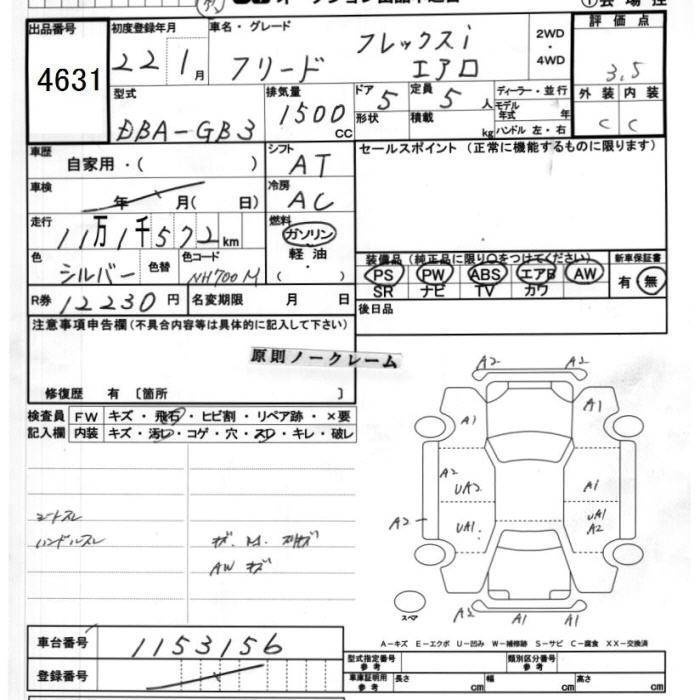 出品番号
4631
初度登録年月
22 1月
車名・グレード
フリード フレックスi エアロ
2WD
・
4WD
評価点
3.5
外装 内装
C C
型式
DBA-GB3
排気量
1500 CC
ドア 5
形状
定員 5 人
積載 kg
ディーラー・並行
モデル年式 年
ハンドル 左・右
車歴
自家用・( )
シフト
AT
セールスポイント (正常に機能するものに限ります)
車検
年 月( 日)
冷房
AC
走行
11万1千572km
燃料
ガソリン
・
軽油
・
色
シルバー
色替
色コード
NH700M
装備品 (純正品に限り○をつけてください)
PS PW ABS エアB AW
SR ナビ TV カワ
新車保証書
有 無
R券 12230円
名変期限 月 日
後日品
注意事項申告欄 (不具合内容等は具体的に記入して下さい)
原則ノークレーム
修復歴 有 〔箇所 〕
検査員
記入欄
FW キズ・飛石・ヒビ割・リペア跡・×要
内装 キズ・汚レ・コゲ・穴・スレ・キレ・破レ
シートスレ
ハンドルスレ
AW キズ
A2 A2
A1 A1
A2
UA2 A1
A2 UA1 UA1
A2
スペア
A2 A1 A1
A-キズ E-エクボ U-凹み W-補修跡 S-サビ C-腐食 XX-交換済
車台番号
1153156
登録番号
型式指定番号
参考
類別区分番号
参考
車庫証明用
参考
長さ cm 幅 cm 高さ cm